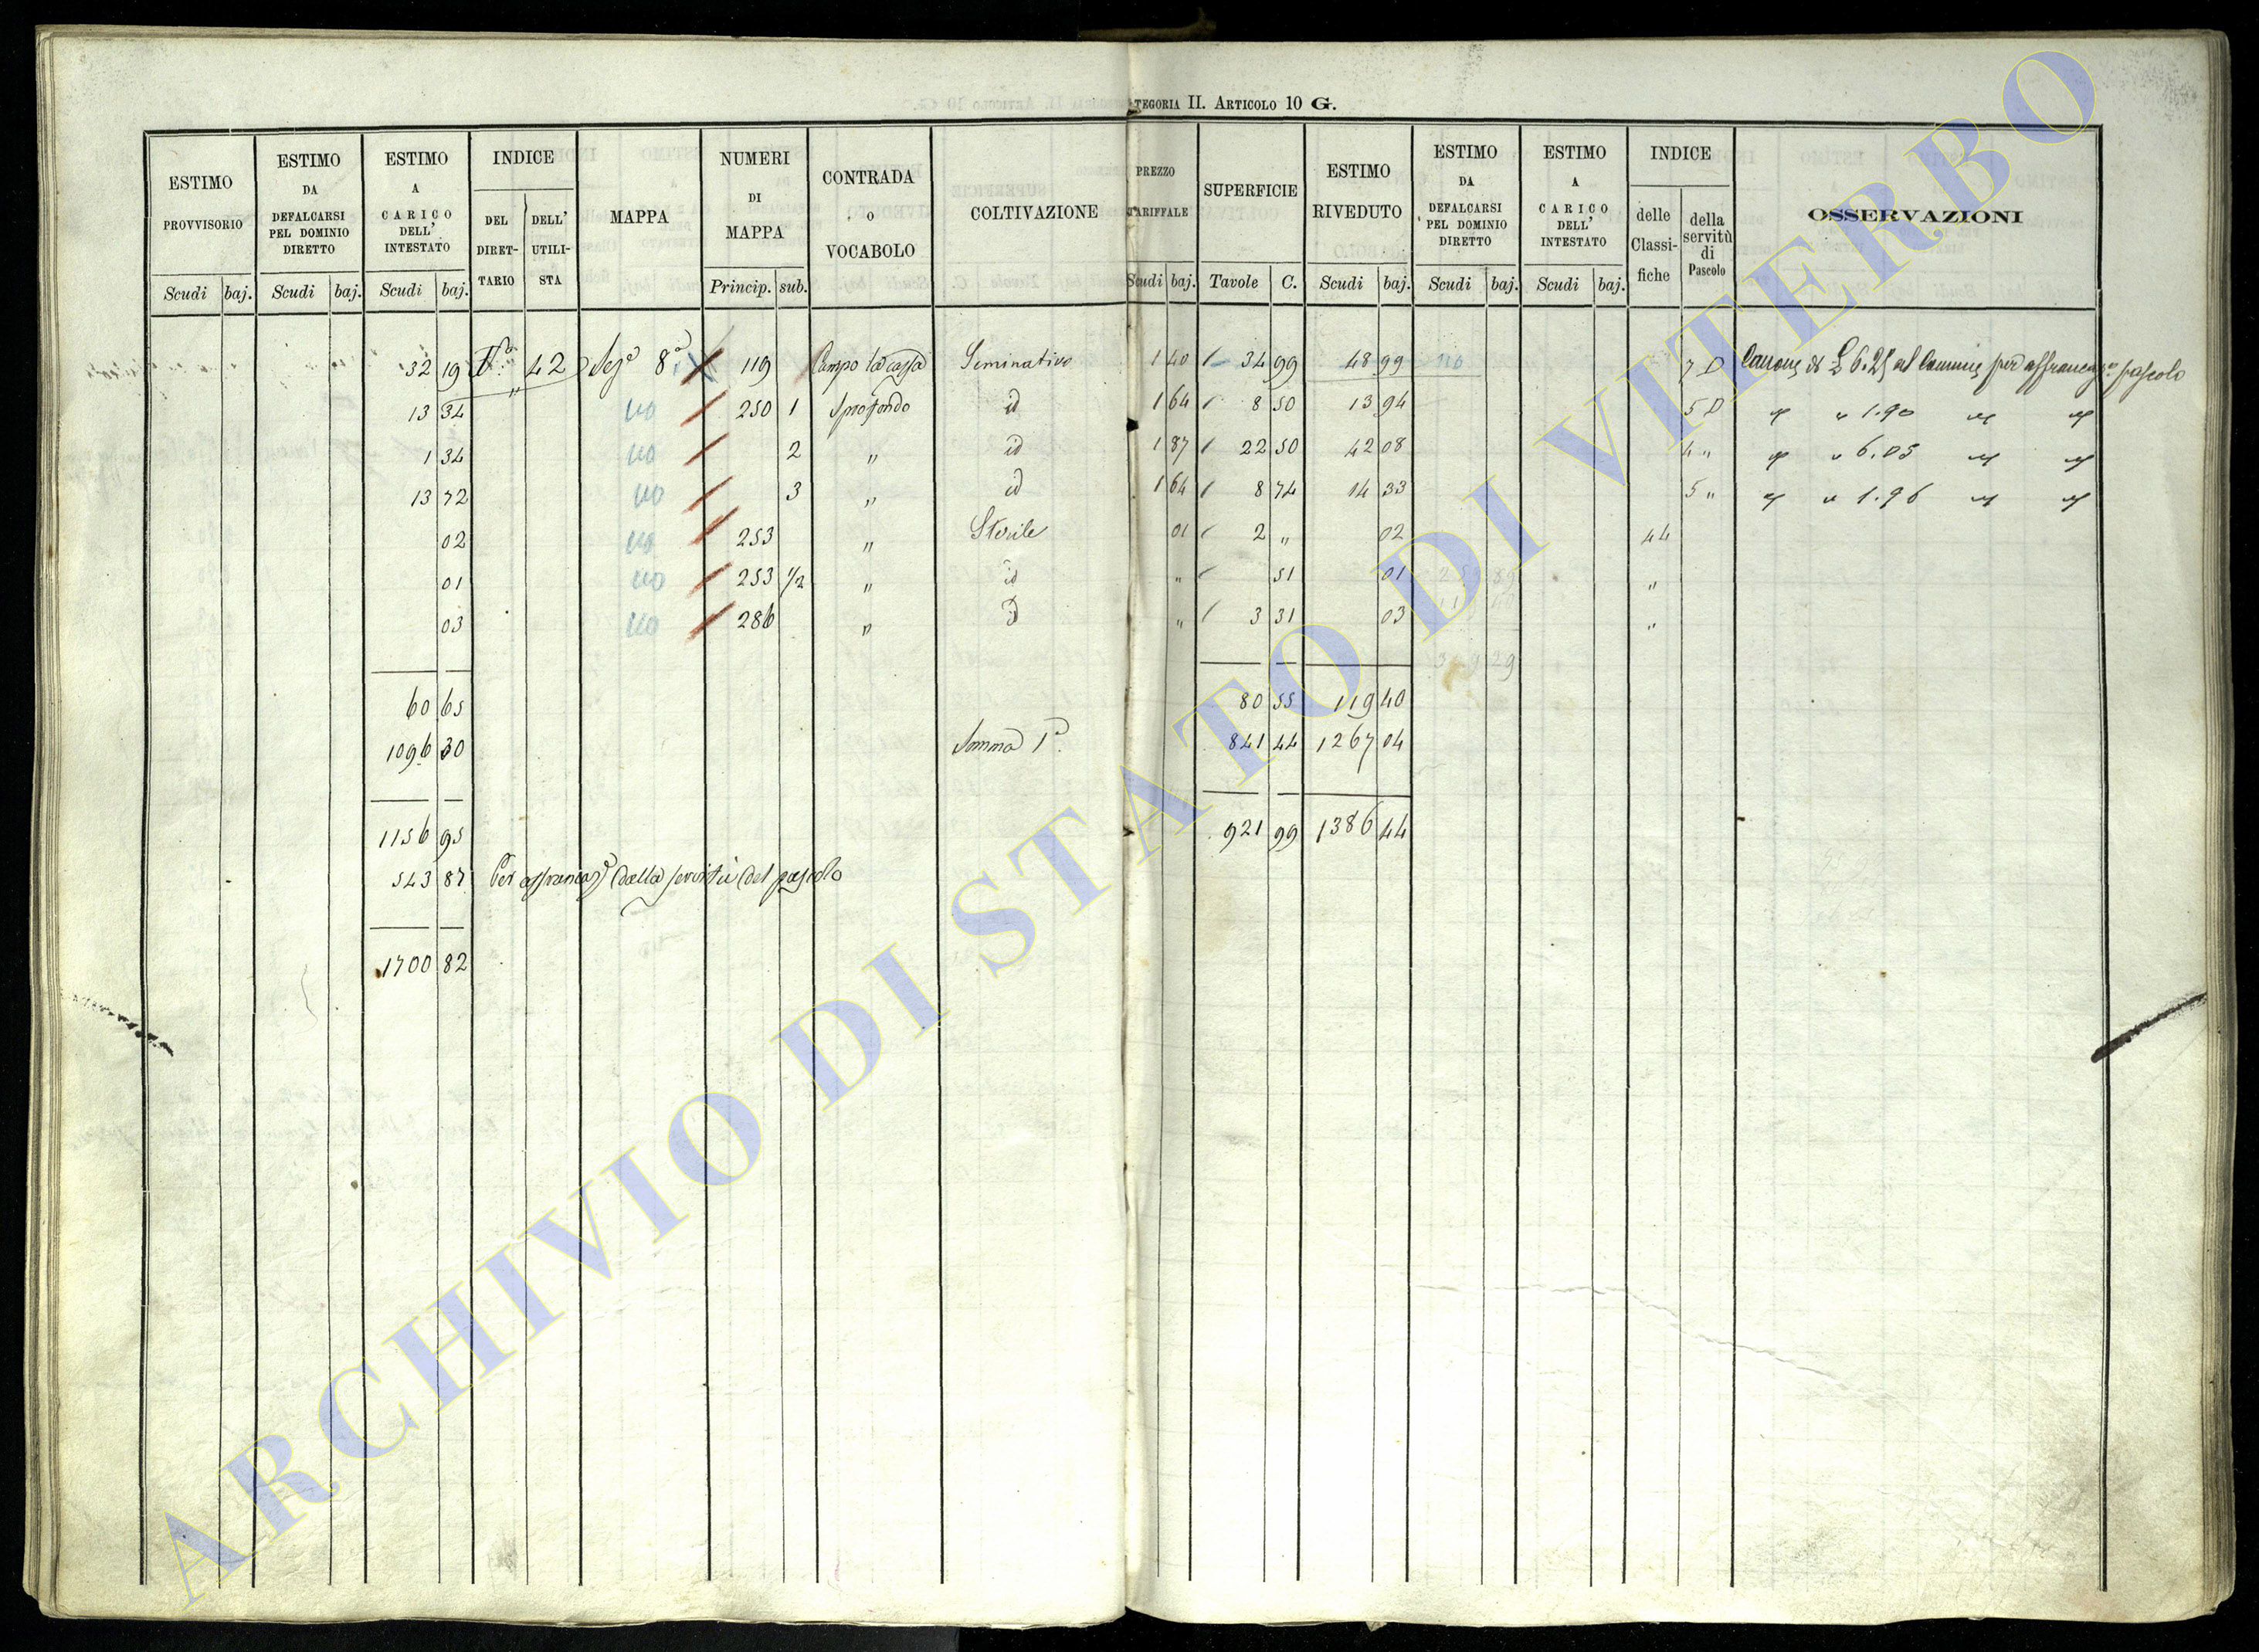 TEGORIA II. ARTICOLO 10 G.
ESTIMO PROVVISORIO Scudi baj.
ESTIMO DA DEFALCARSI PEL DOMINIO DIRETTO Scudi baj.
ESTIMO A CARICO DELL' INTESTATO Scudi baj.
INDICE DEL DIRET-TARIO DELL' UTILI-STA
MAPPA
NUMERI DI MAPPA Princip. sub.
CONTRADA O VOCABOLO
COLTIVAZIONE
PREZZO TARIFFALE Scudi baj.
SUPERFICIE Tavole C.
ESTIMO RIVEDUTO Scudi baj.
ESTIMO DA DEFALCARSI PEL DOMINIO DIRETTO Scudi baj.
ESTIMO A CARICO DELL' INTESTATO Scudi baj.
INDICE delle Classi-fiche della servitù di Pascolo
OSSERVAZIONI
32 19 42 Seg.a 8a 119 Campo la cassa Seminativo 1 40 34 99 48 99 no 7 D Canone di £ 6.25 al Comune per affrancaz.ne pascolo
13 34 no 250 1 Sprofondo id 1 64 8 50 13 94 5 D " " 1.90 " "
1 34 no 2 " id 1 87 22 50 42 08 4 " " " 6.05 " "
13 72 no 3 " id 1 64 8 74 14 33 5 " " " 1.96 " "
02 no 253 " Sterile 01 2 " 02 44
01 no 253 1/2 " id " 51 01 "
03 no 286 " id " 3 31 03 "
60 65 80 55 119 40
1096 30 Somma Ia. 841 44 1267 04
1156 95 921 99 1386 44
543 87 Per affrancaz.e dalla servitù del pascolo
1700 82
ARCHIVIO DI STATO DI VITERBO